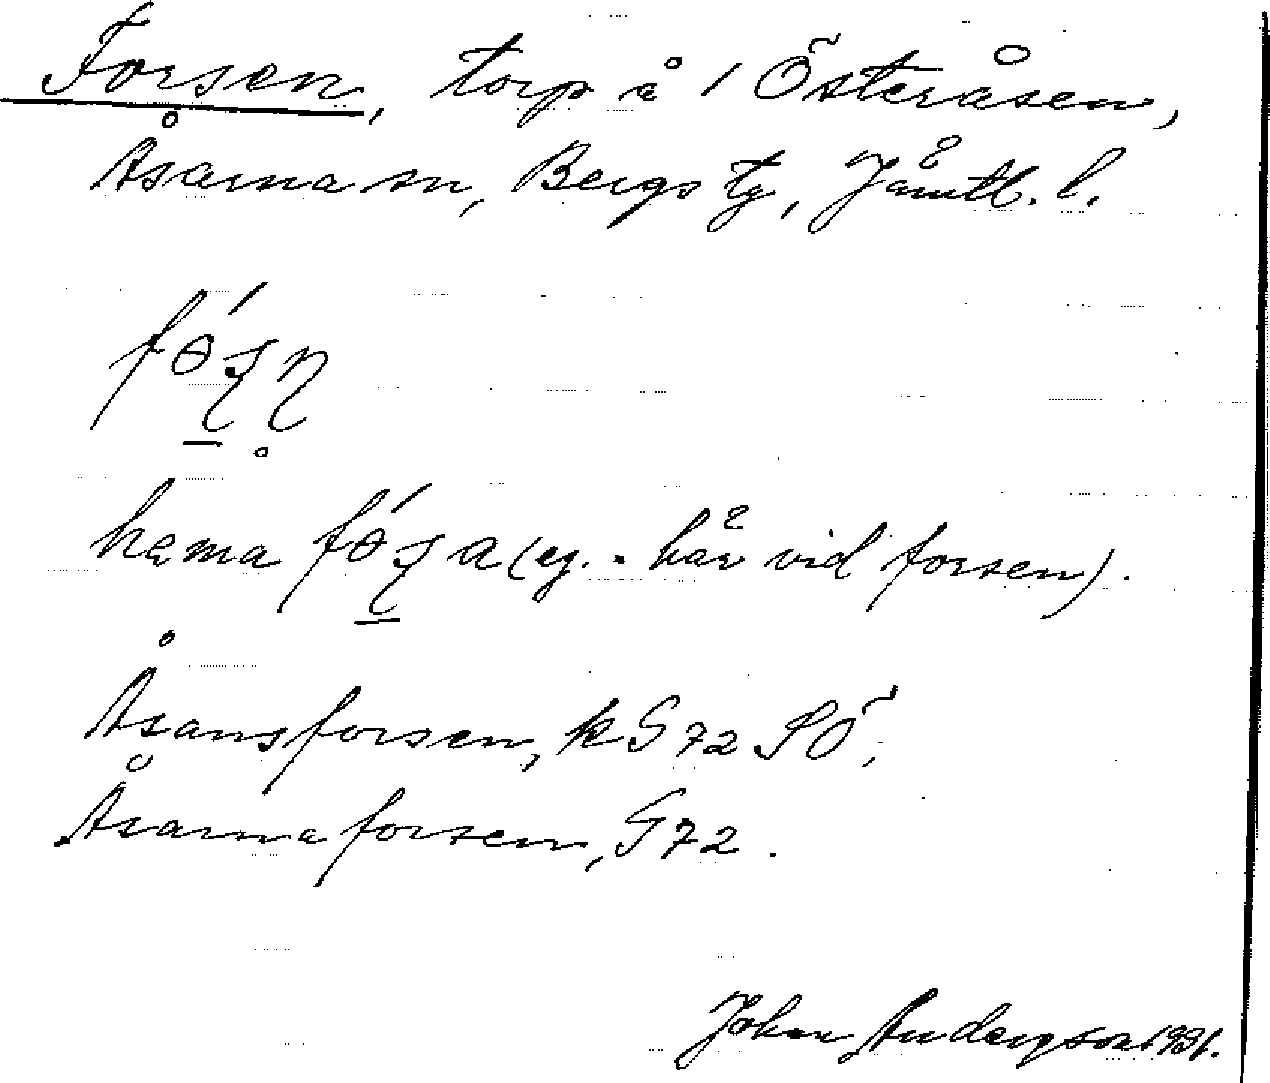 Forsen, torp å 1 Österåsen,
Åsarna sn, Bergs tg, Jämtl. l.
fɵ́ʂn̥
hema fɵ́ʂa (eg. = här vid forsen).
Åsansforsen, k G 72 SÖ,
Åsarnaforsen, G 72.
John Anderson 1931.